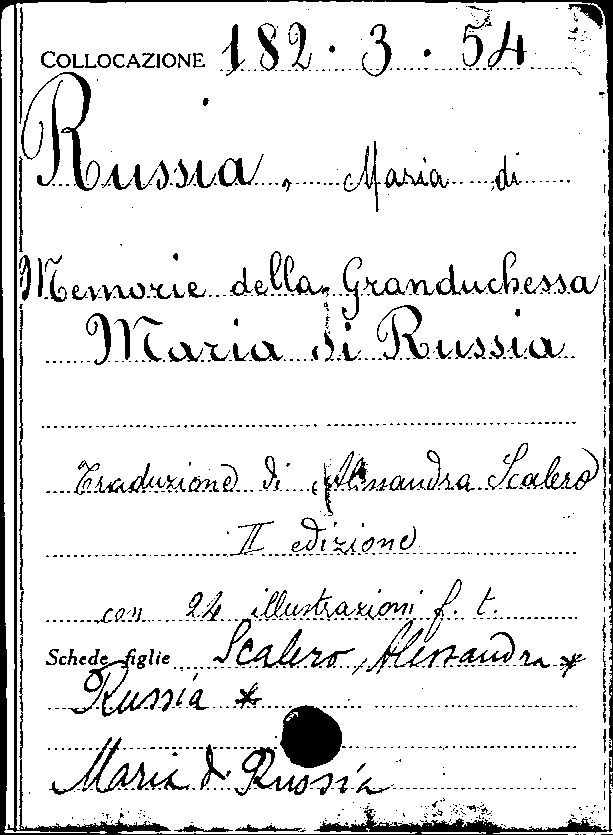 COLLOCAZIONE 182 . 3 . 54
Russia, Maria di
Memorie della Granduchessa
Maria di Russia
Traduzione di Alessandra Scalero
II edizione
con 24 illustrazioni f. t.
Schede figlie Scalero, Alessandra *
Russia *
Maria di Russia